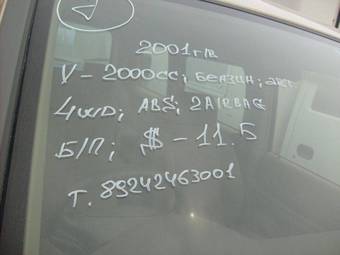 2001 г/в
V-2000CC; БЕНЗИН;
4WD; ABS; 2AIRBAG
Б/П; $-11.5
Т. 89242463001